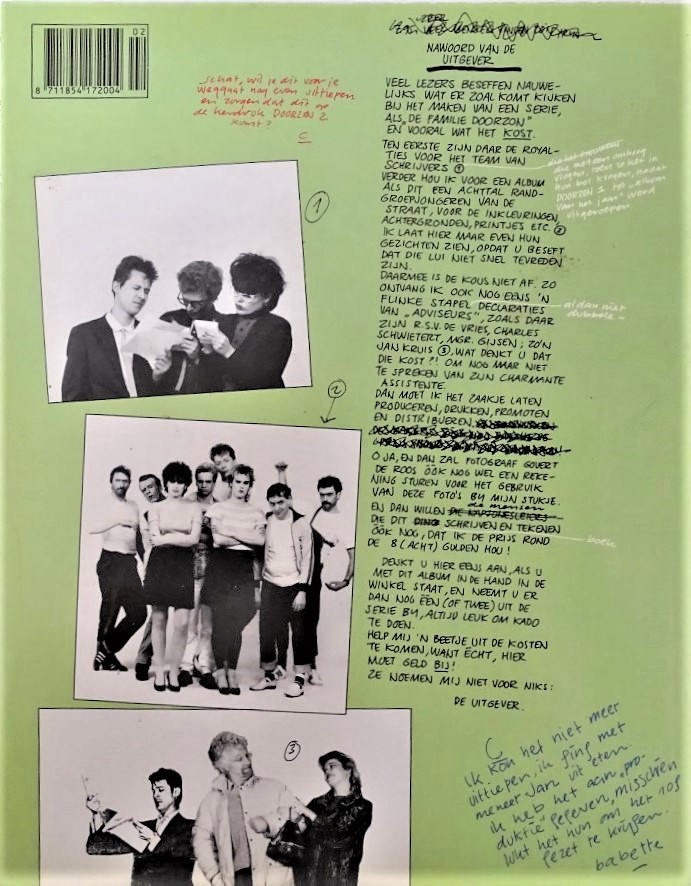 02
8 711854 172004
schat, wil je dit voor je
weggaat nog even uittiepen
en zorgen dat dit op
de kendrok DOORZON 2
komt?
C
NAWOORD VAN DE
UITGEVER
VEEL LEZERS BESEFFEN NAUWE-
LIJKS WAT ER ZOAL KOMT KIJKEN
BIJ HET MAKEN VAN EEN SERIE,
ALS „DE FAMILIE DOORZON"
EN VOORAL WAT HET KOST.
TEN EERSTE ZIJN DAAR DE ROYAL-
TIES VOOR HET TEAM VAN
SCHRIJVERS ①
VERDER HOU IK VOOR EEN ALBUM
ALS DIT EEN ACHTTAL RAND-
GROEPJONGEREN VAN DE
STRAAT, VOOR DE INKLEURINGEN,
ACHTERGRONDEN, PRINTJES ETC. ②
IK LAAT HIER MAAR EVEN HUN
GEZICHTEN ZIEN, OPDAT U BESEFT
DAT DIE LUI NIET SNEL TEVREDEN
ZIJN.
DAARMEE IS DE KOUS NIET AF. ZO
ONTVANG IK OOK NOG EENS 'N
FLINKE STAPEL DECLARATIES
VAN „ADVISEURS", ZOALS DAAR
ZIJN R.S.V. DE VRIES, CHARLES
SCHWIETERT, MGR. GIJSEN; ZO'N
JAN KRUIS ③, WAT DENKT U DAT
DIE KOST?! OM NOG MAAR NIET
TE SPREKEN VAN ZIJN CHARMANTE
ASSISTENTE.
DAN MOET IK HET ZAAKJE LATEN
PRODUCEREN, DRUKKEN, PROMOTEN
EN DISTRIBUEREN
O JA, EN DAN ZAL FOTOGRAAF GOVERT
DE ROOS ÓÓK NOG WEL EEN REKE-
NING STUREN VOOR HET GEBRUIK
VAN DEZE FOTO'S BY MIJN STUKJE.
de mensen
EN DAN WILLEN DIE
DIE DIT DING SCHRIJVEN EN TEKENEN
ÓÓK NOG, DAT IK DE PRIJS ROND
DE 8 (ACHT) GULDEN HOU!
DENKT U HIER EENS AAN, ALS U
MET DIT ALBUM IN DE HAND IN DE
WINKEL STAAT, EN NEEMT U ER
DAN NOG ÉÉN (OF TWEE) UIT DE
SERIE BY, ALTIJD LEUK OM KADO
TE DOEN.
HELP MIJ 'N BEETJE UIT DE KOSTEN
TE KOMEN, WANT ÉCHT, HIER
MOET GELD BIJ!
ZE NOEMEN MIJ NIET VOOR NIKS:
DE UITGEVER.
die met een omweg
DOORZON 1 tot „album
van het jaar" werd
uitgeroepen
al dan niet
dubbele
①
②
③
C
ik kon het niet meer
uittiepen, ik ging met
meneer Jan uit eten.
ik heb het aan „pro-
duktie" gegeven, misschien
lukt het hun om het nog
gezet te krijgen.
babette